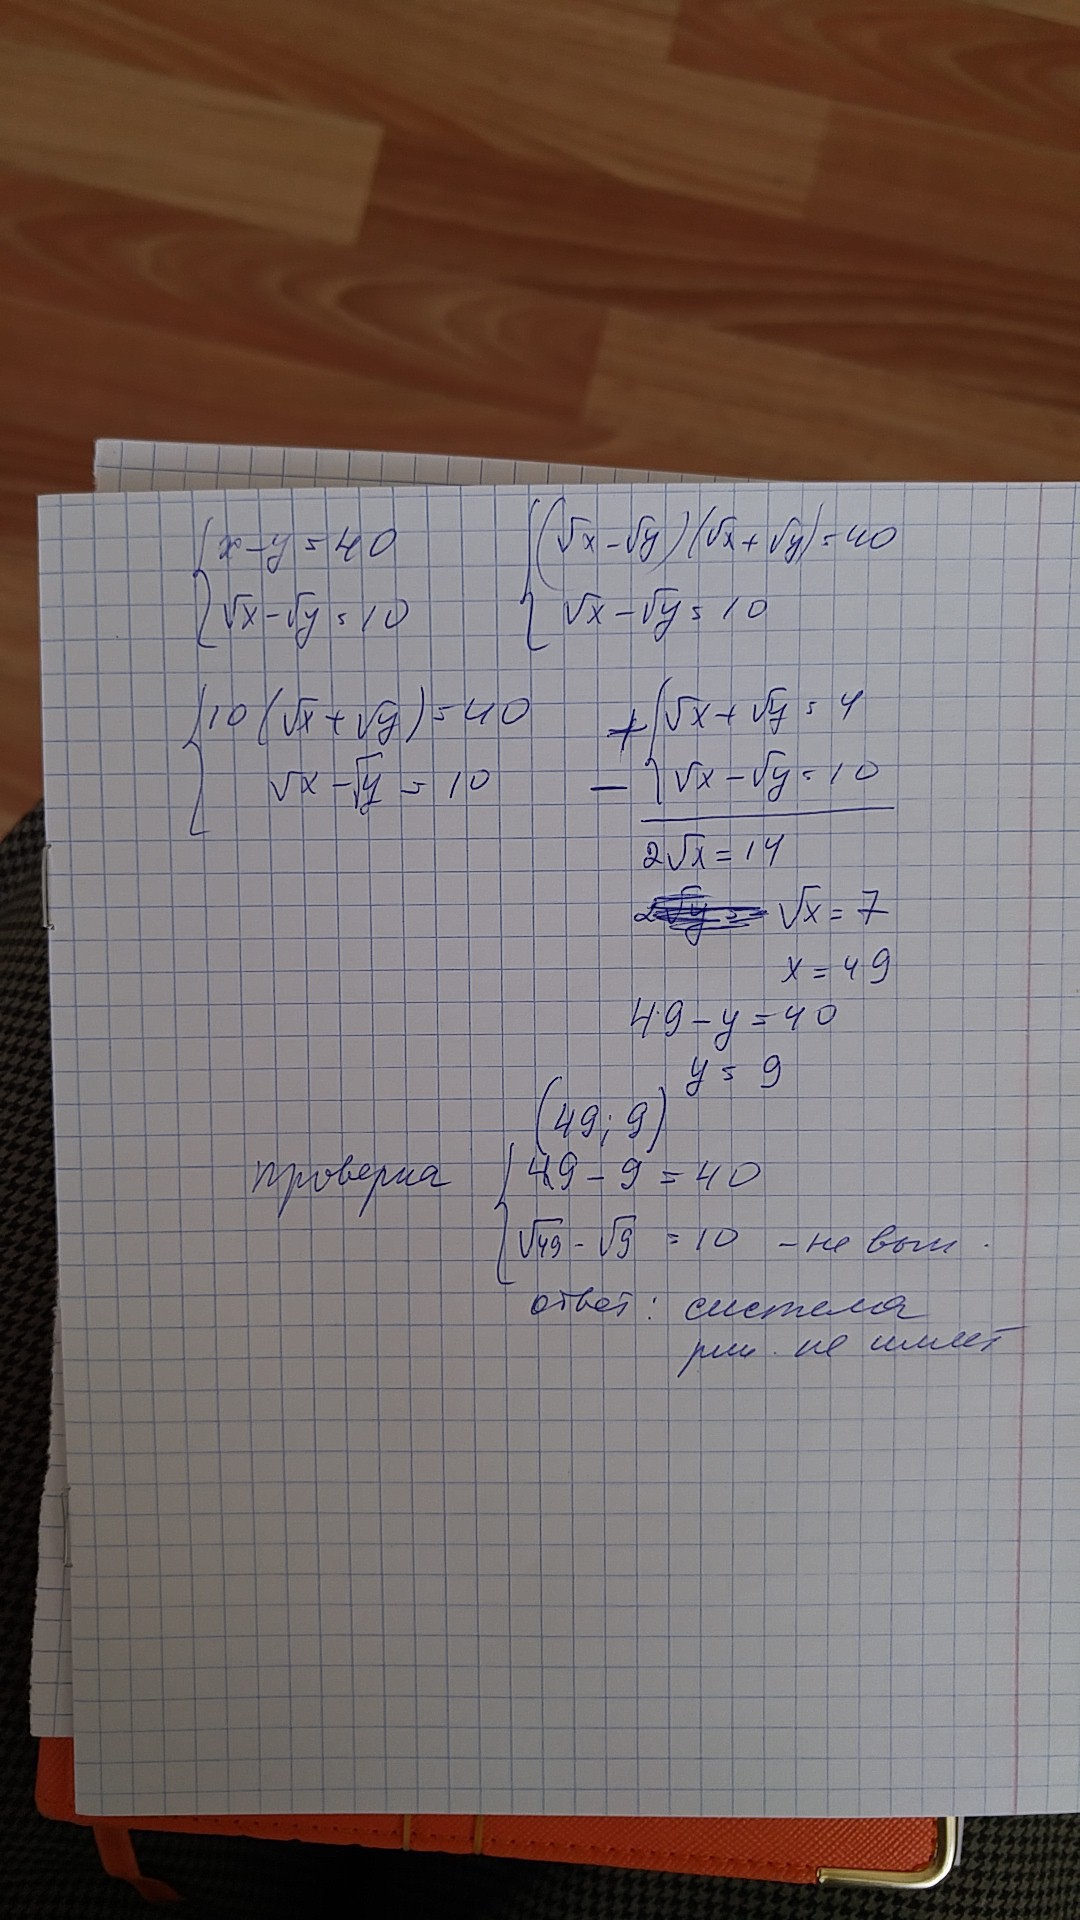 { x - y = 40
√x - √y = 10
{ (√x - √y)(√x + √y) = 40
√x - √y = 10
{ 10(√x + √y) = 40
√x - √y = 10
+ { √x + √y = 4
- √x - √y = 10
2√x = 14
√x = 7
x = 49
49 - y = 40
y = 9
(49; 9)
проверка { 49 - 9 = 40
√49 - √9 = 10 - не вып.
ответ: система
реш. не имеет